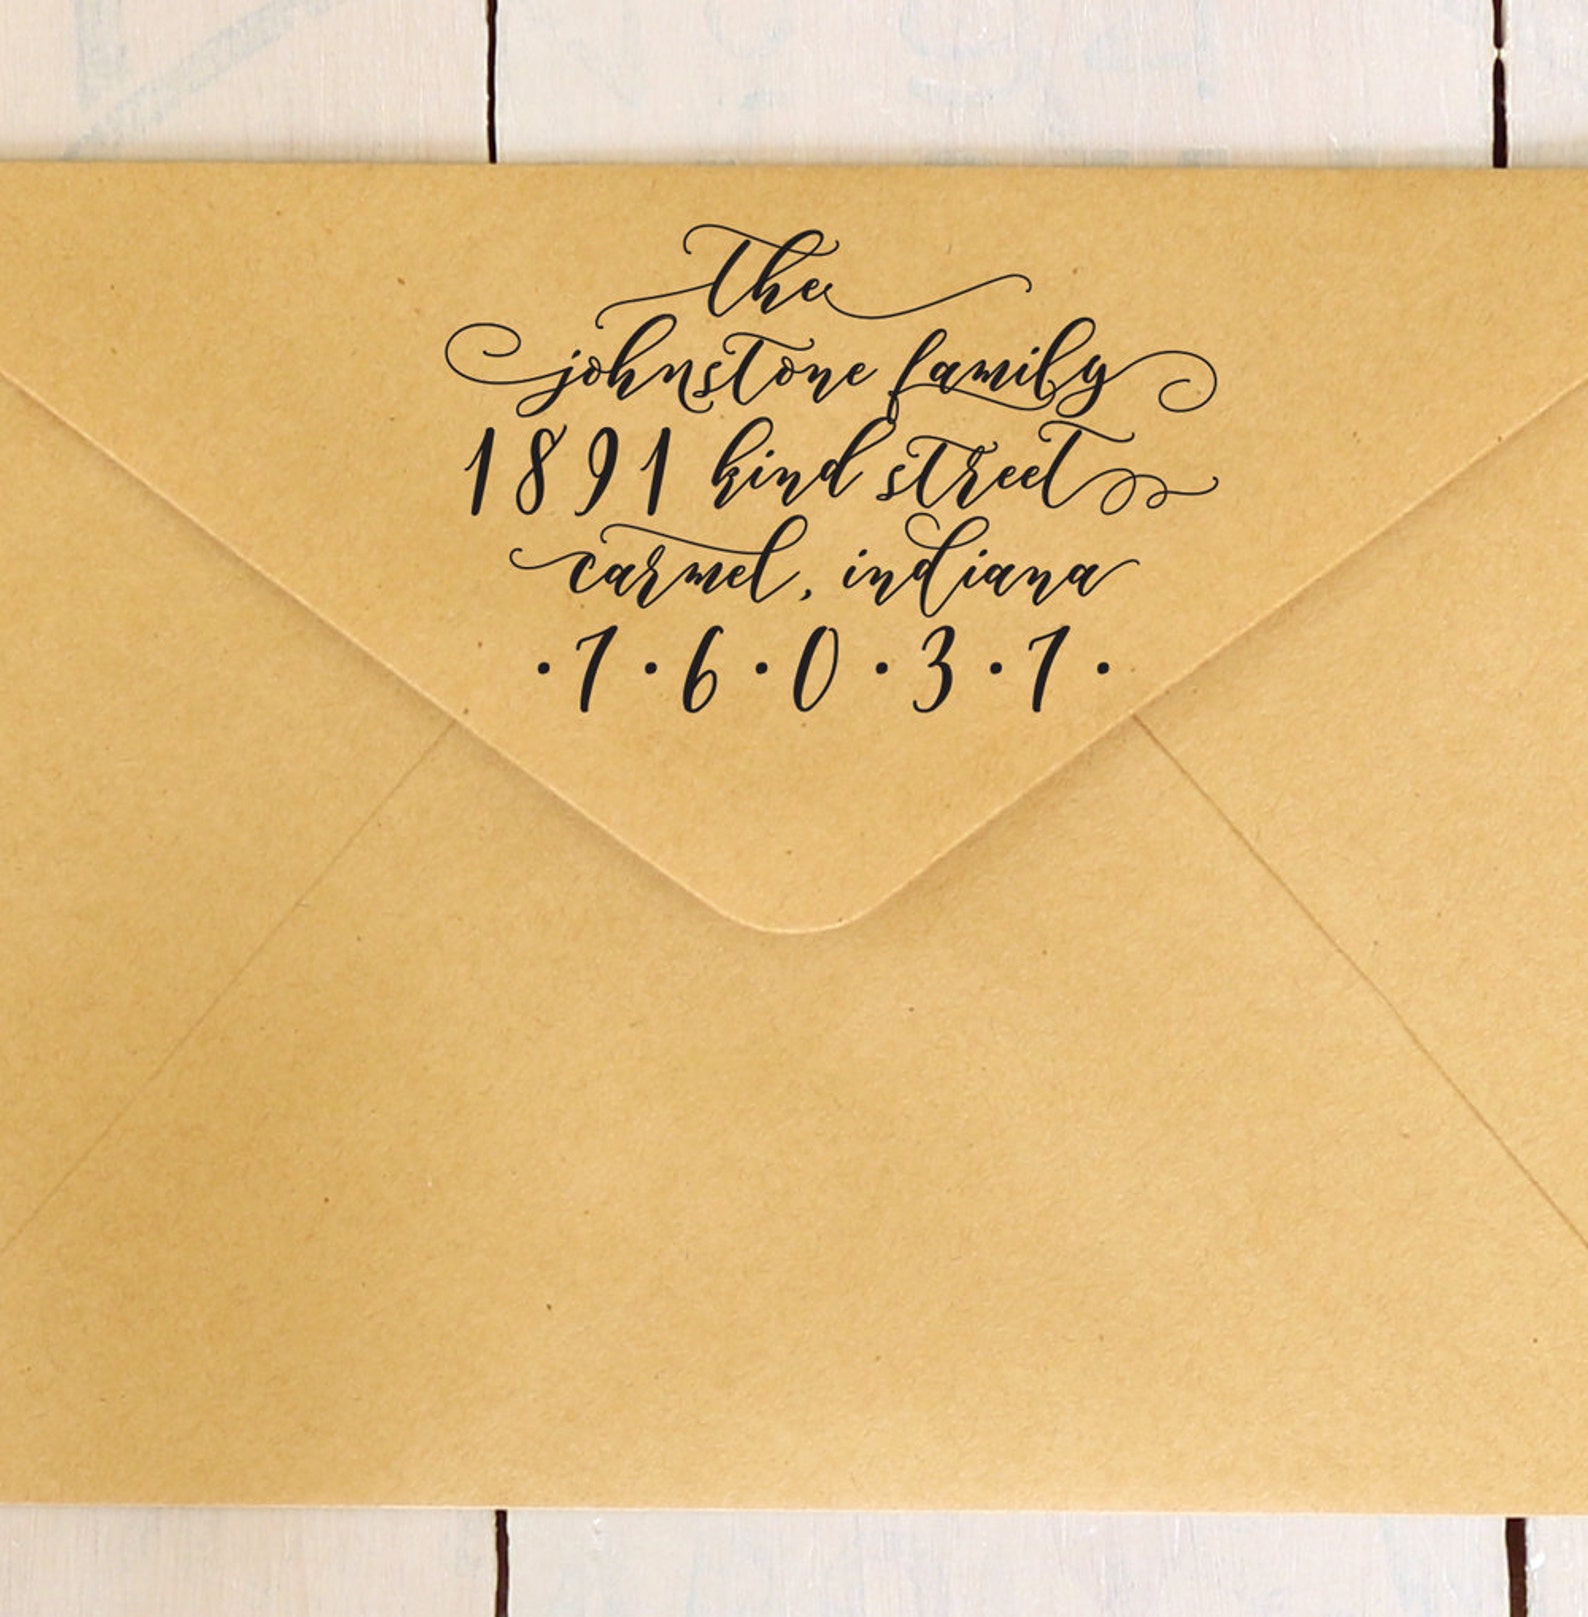 the
johnstone family
1891 kind street
carmel, indiana
·7·6·0·3·7·